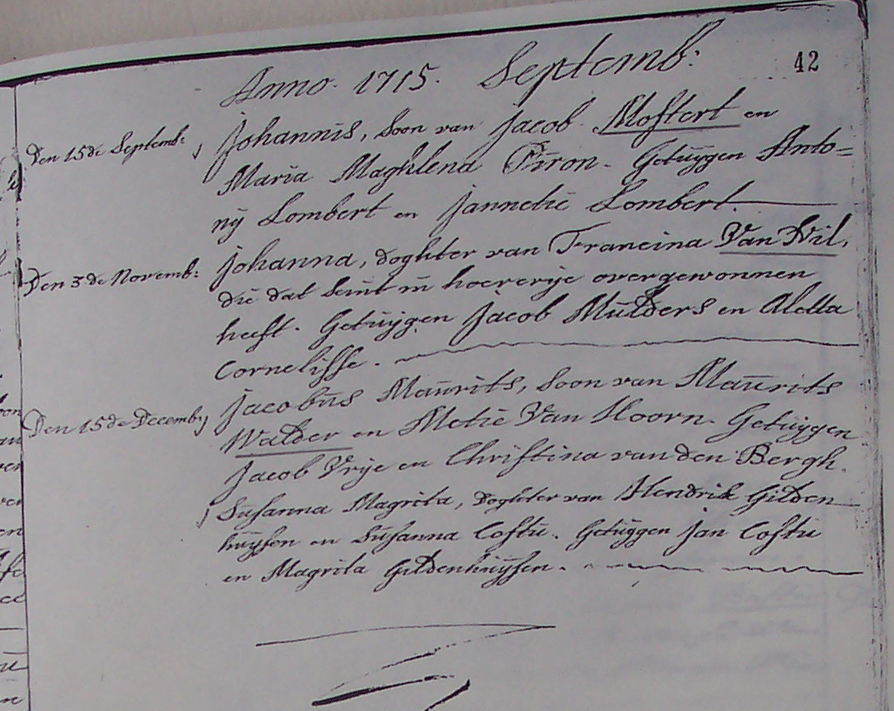 42
Anno. 1715. Septemb:
Den 15de Septemb:, Johannis, Soon van Jacob Mostert en
Maria Maghlena Firon. Getuygen Anto=
nÿ Lombert en Jannetie Lombert.
Den 3de Novemb: Johanna, doghter van Francina Van Wil,
die dat seint in hoererije overgewonnen
heeft. Getuÿgen Jacob Mulders en Aletta
Cornelisse.
Den 15de Decemb, Jacobus Maurits, Soon van Maurits
Walder en Metie Van Hoorn. Getuÿgen
Jacob Vrije en Christina van den Bergh.
Susanna Magrita, Doghter van Hendrik Gilden
huÿsen en Susanna Costu. Getuÿgen Jan Costu
en Magrita Gildenhuÿsen.